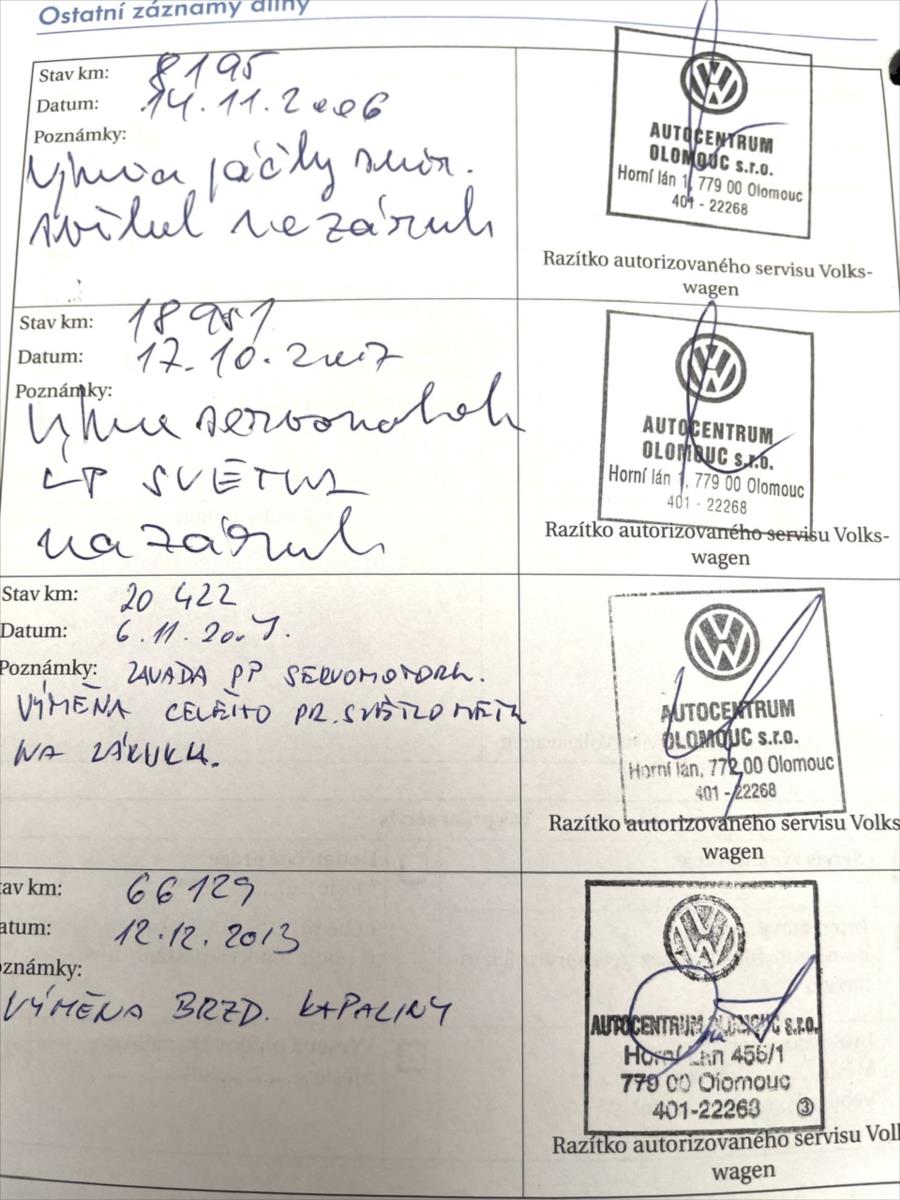 Ostatní záznamy dílny
Stav km: 8195
Datum: 14.11.2006
Poznámky:
Výměna páčky směr.
světel
AUTOCENTRUM
OLOMOUC s.r.o.
Horní lán 1, 779 00 Olomouc
401 - 22268
Razítko autorizovaného servisu Volks-
wagen
Stav km: 18951
Datum: 17.10.2007
Poznámky:
LP SVĚTLA
na záruku
AUTOCENTRUM
OLOMOUC s.r.o.
Horní lán 1, 779 00 Olomouc
401 - 22268
Razítko autorizovaného servisu Volks-
wagen
Stav km: 20 422
Datum: 6.11.2007.
Poznámky: ZAVADA PP SERVOMOTORU.
VÝMĚNA CELÉHO PR. SVĚTLOMETU
NA ZÁRUKU.
AUTOCENTRUM
OLOMOUC s.r.o.
Horní lán, 772 00 Olomouc
401 - 22268
Razítko autorizovaného servisu Volks-
wagen
tav km: 66129
atum: 12.12.2013
oznámky:
VÝMĚNA BRZD. KAPALINY
AUTOCENTRUM OLOMOUC s.r.o.
Horní Lán 456/1
779 00 Olomouc
401-22268 3
Razítko autorizovaného servisu Vol
wagen